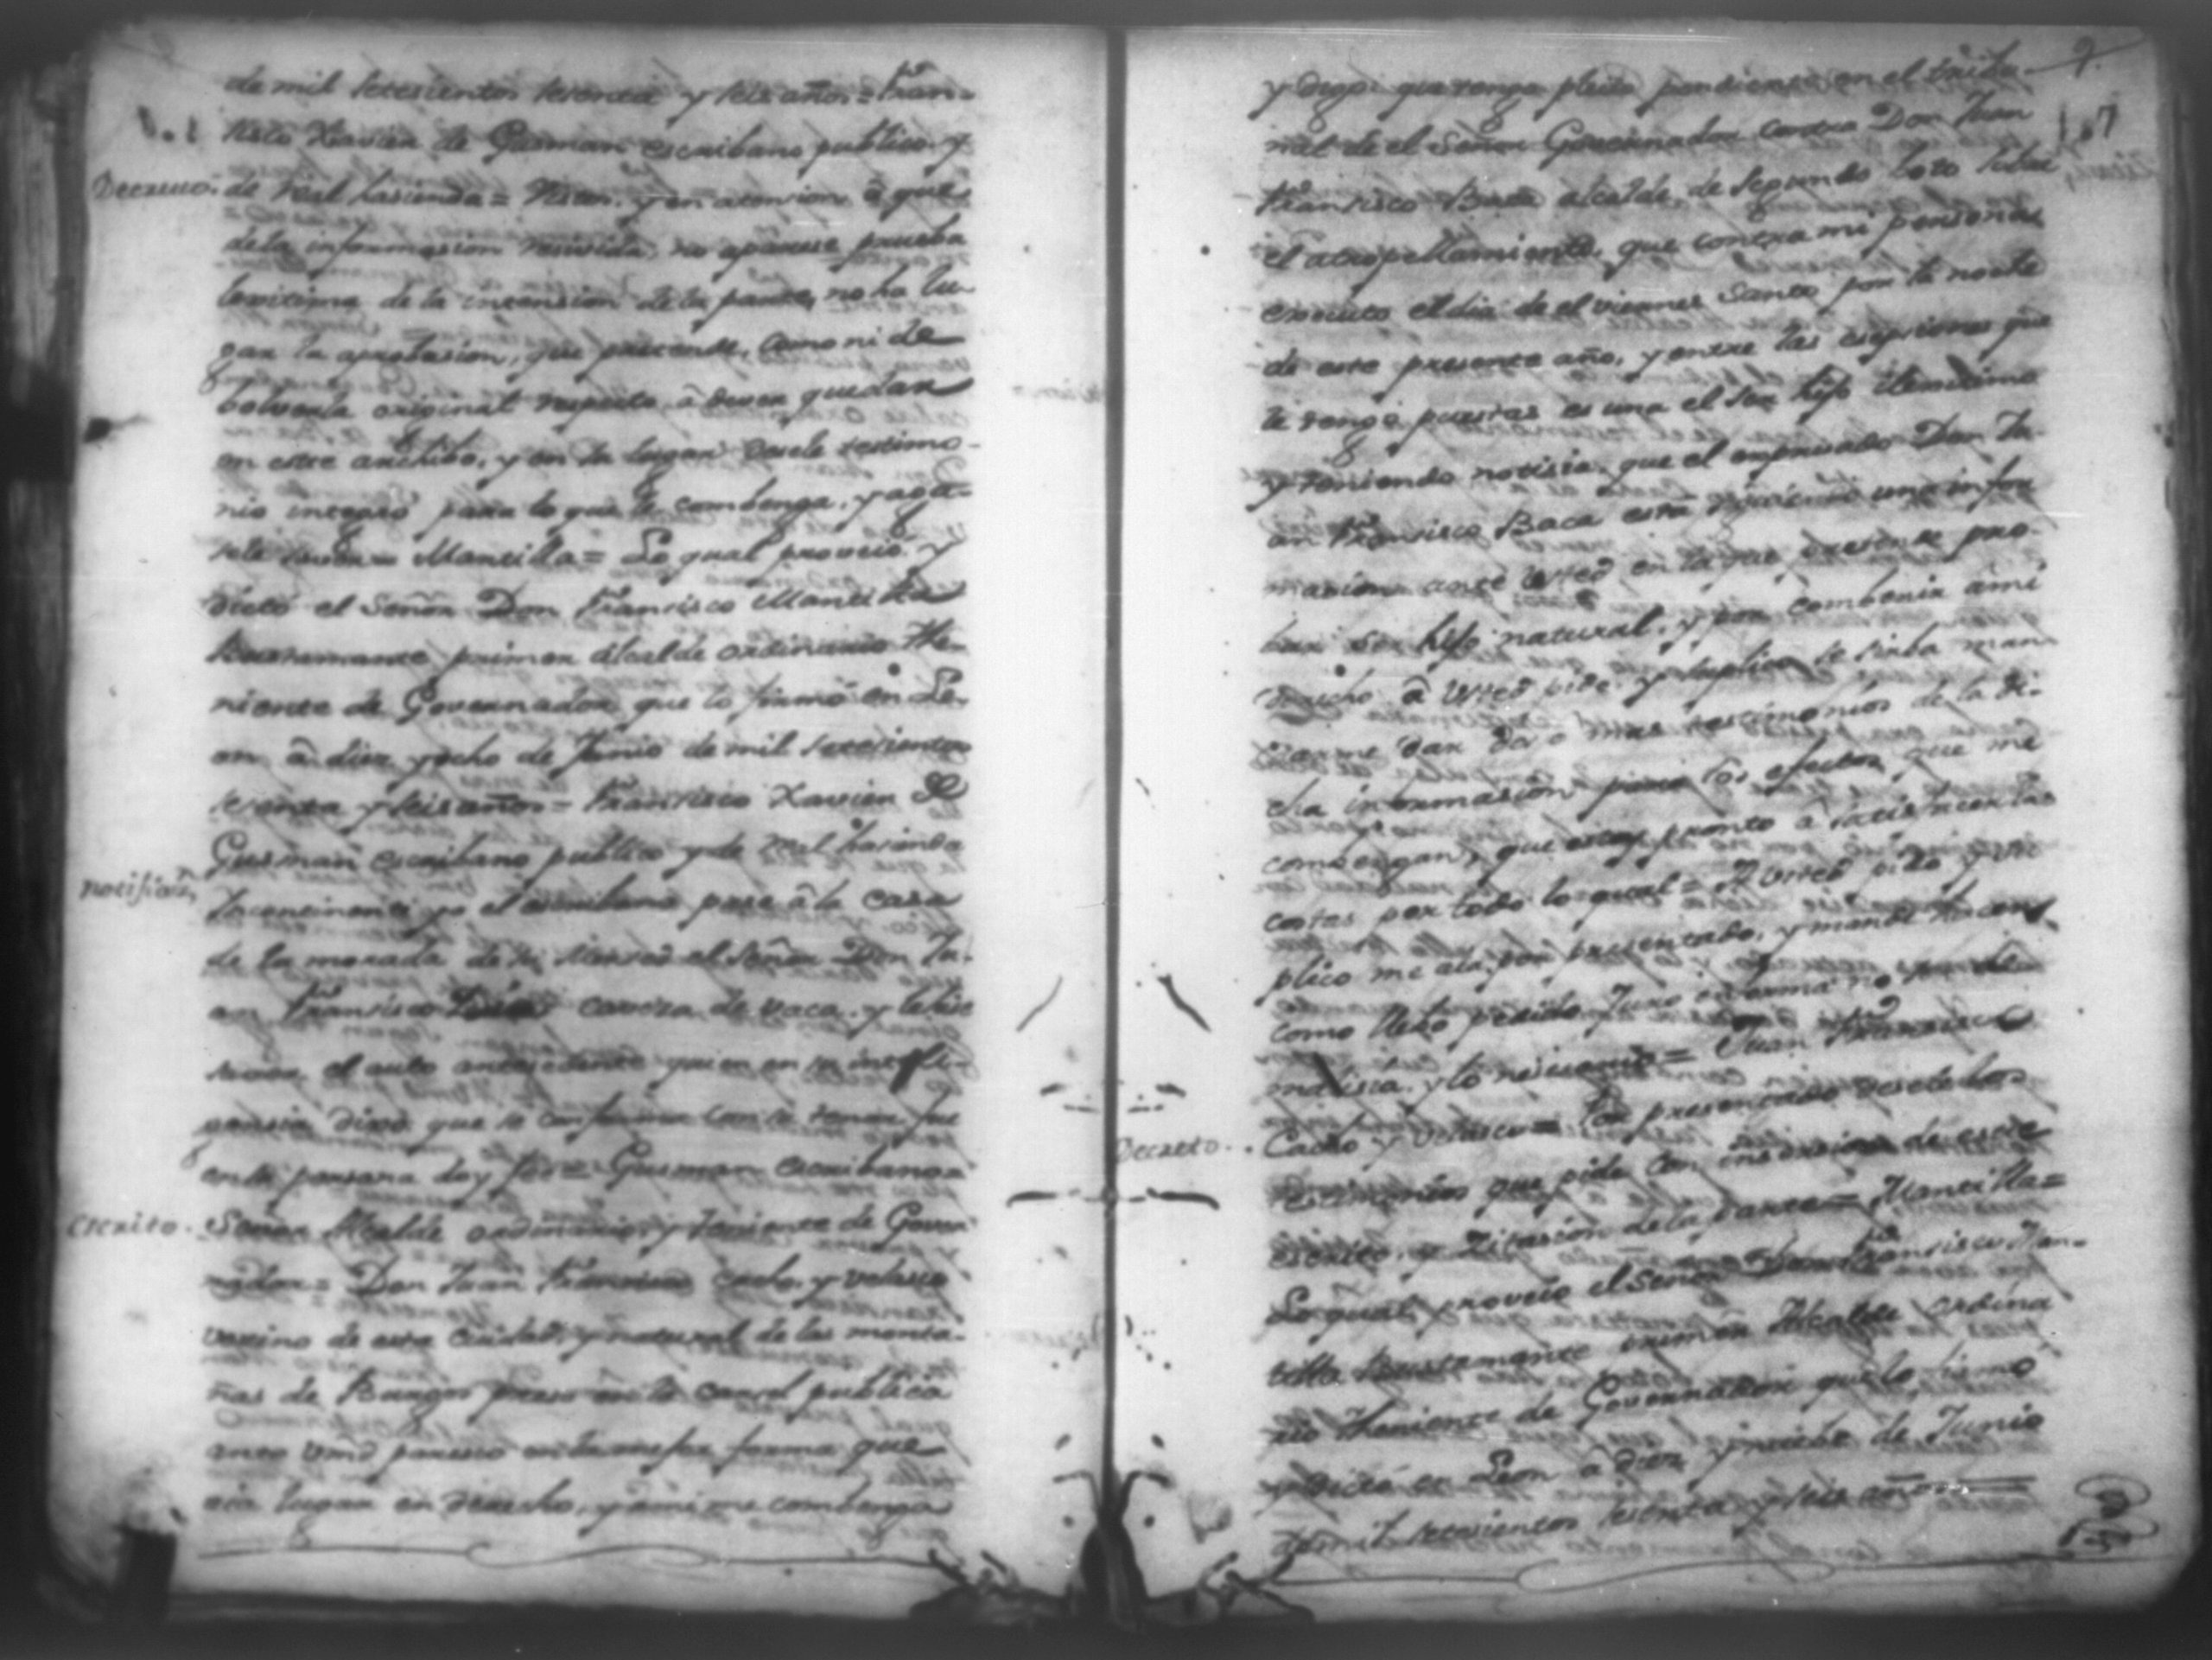 de mil setesientos sesenta y seis años = Fran-
sisco Xavier de Gusman escribano publico y
Decreto. de real hasienda = Vistos. y en atension â que
de la informasion resivida, no aparese prueba
lexitima de la intension de la parte, no ha lu-
gar la aprobasion, que pretende, como ni de
bolverla original respecto â dever quedar
en este archibo, y en su lugar desele testimo-
nio integro para lo que le combenga, y aga-
sele saver = Mantilla = Lo qual proveió y
dictó el Señor Don Fransisco Mantilla
Bustamante primer Alcalde ordinario The-
niente de Governador que lo firmó en Le-
on â diez y ocho de Junio de mil setesientos
sesenta y seis años = Fransisco Xavier de
Gusman escribano publico y de real hasienda
Notificasn. Incontinenti yo el escribano pase â la casa
de la morada de su Merced el Señor Don Ju-
an Fransisco caveza de vaca. y le hise
saver el auto antesedente quien en su inteli-
gensia dixo que se conforma con su tenor fue
en su persona doy fee = Gusman escribano =
Escrito. Señor Alcalde ordinario, y Teniente de Gover-
nador = Don Juan Fransisco Cacho, y velasco
vesino de esta Ciudad, y natural de las monta-
ñas de Burgos preso en la carsel publica
ante Vmd paresco en la mejor forma que
aia lugar en derecho, y â mi me combenga
9
107
y digo: que tengo pleito pendiente en el tribu-
nal de el Señor Governador contra Don Juan
Fransisco Baca alcalde de segundo boto sobre
el atropellamiento, que contra mi persona
executó el dia de el viernes Santo por la noche
de este presente año, y entre las esepsiones que
le tengo puestas es una el ser hijo ilexitimo
y teniendo notisia, que el expresado Don Ju-
an Fransisco Baca está siguiendo una infor
masion ante Vsted en la que pretende pro-
bar ser hijo natural, y por combenir â mi
derecho â Vsted pido y suplico se sirba man-
darme dar dos o mas testimonios de la di-
cha informasion para los efectos que me
combengan, que estoy pronto â satisfacer las
costas por todo lo qual = A Vsted pido y su
plico me aia por presentado, y mande haser
como llebo pedido Juro en forma no ser de
malisia. y lo nesesario = Juan Fransisco
Decreto. Cacho y Velasco = Por presentado desele los
testimonios que pide con insersion de este
escrito, y Sitasion de la parte = Mantilla =
Lo qual proveió el Señor Don Fransisco Man-
tilla Bustamante primer Alcalde ordina
rio Theniente de Governador que lo firmó
y dictó en Leon â diez y nueve de Junio
de mil setesientos sesenta y seis años =